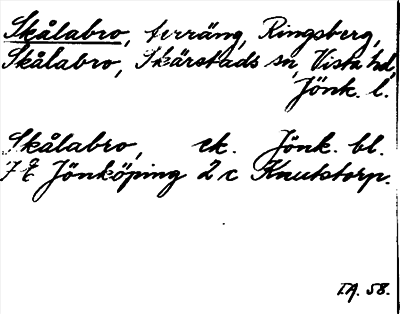 Skålabro, terräng, Ringsberg,
Skålabro, Skärstads sn, Vista hd,
Jönk. l.
Skålabro, ek. Jönk. bl.
7E Jönköping 2 c Knutstorp.
I.A. 58.